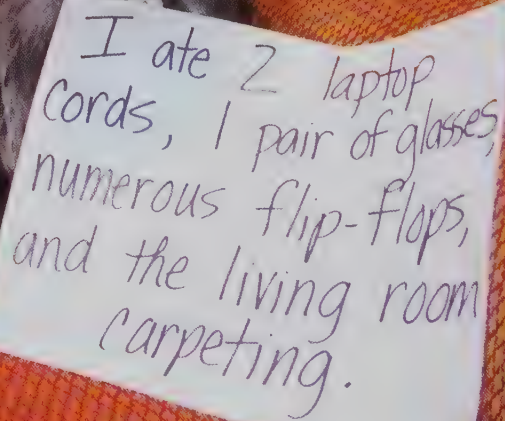 I ate 2 laptop
cords, 1 pair of glasses,
numerous flip-flops,
and the living room
carpeting.